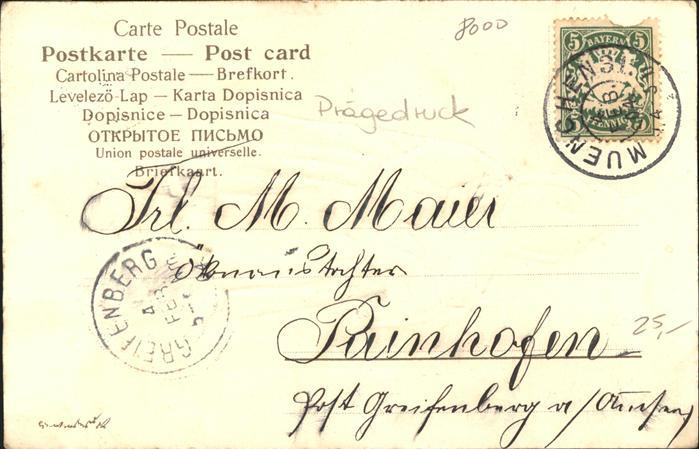 Carte Postale
Postkarte — Post card
Cartolina Postale — Brefkort.
Levelező Lap — Karta Dopisnica
Dopisnice — Dopisnica
ОТКРЫТОЕ ПИСЬМО
Union postale universelle.
Briefkaart.
8000
Prägedruck
5 BAYERN 5
MUENCHEN
FEB
Frl. M. Maier
Ökonomstochter
GREIFENBERG
4
FEB
Painhofen
25,-
Post Greifenberg a/Ammersee